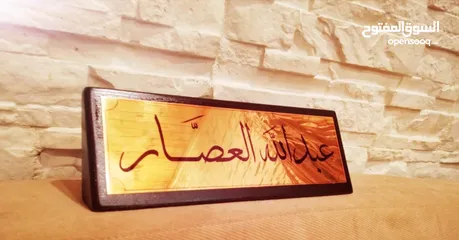 السوق المفتوح
opensooq.com
عبدالله العصَّار